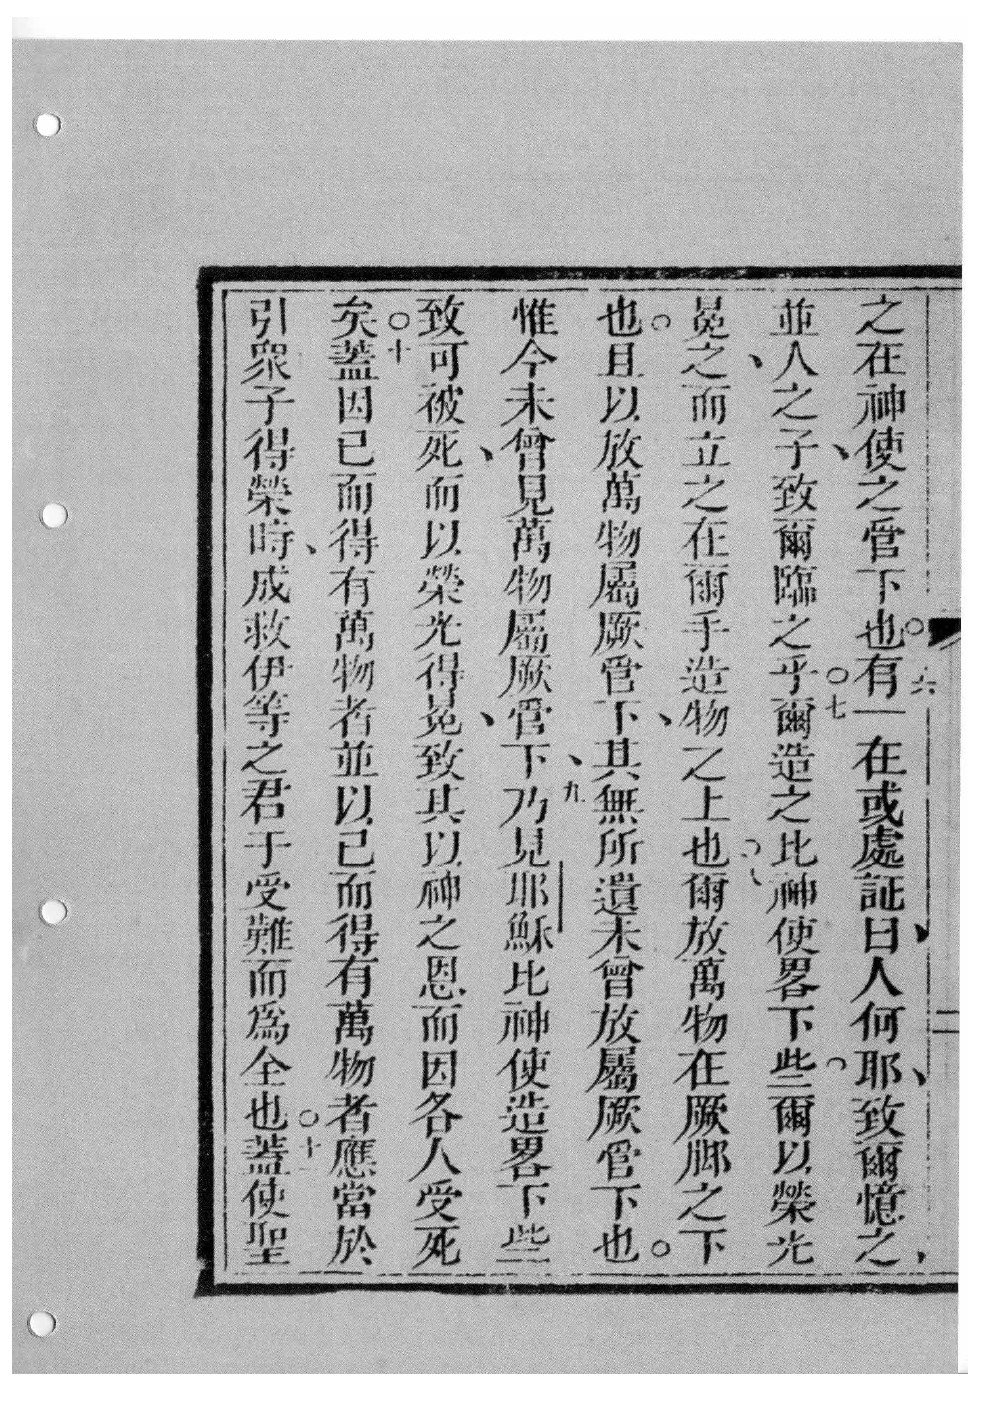 之在神使之管下也○六有一在或處証曰人何耶、致爾憶之、
並人之子、致爾臨之乎○七爾造之比神使畧下些爾以榮光
冕之、而立之在爾手造物之上也爾放萬物在厥脚之下
也○且以放萬物屬厥管下、其無所遺未曾放屬厥管下也○
惟今未曾見萬物屬厥管下、九乃見耶穌比神使造畧下些
致可被死、而以榮光得冕、致其以神之恩而因各人受死
矣○十蓋因已而得有萬物者並以已而得有萬物者應當於
引衆子得榮時、成救伊等之君于受難而爲全也○十一蓋使聖
二